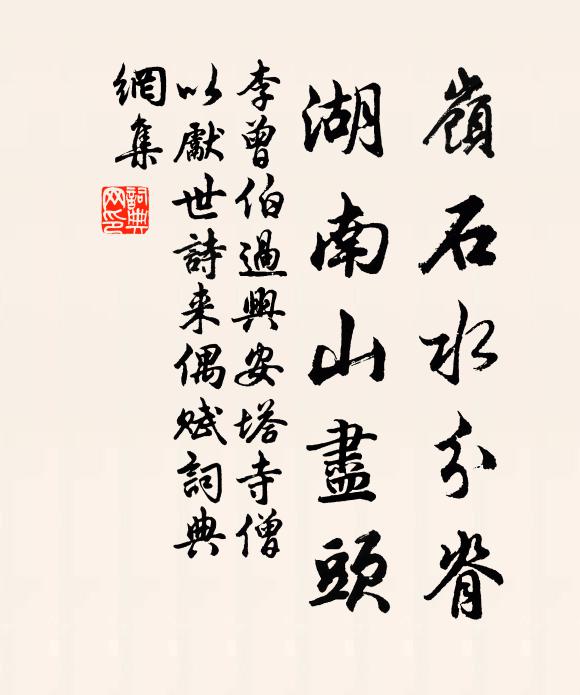 嶺石水分脊
湖南山盡頭
李曾伯過興安塔寺僧
以獻世詩来偶賦詞典
網集
詞典網印